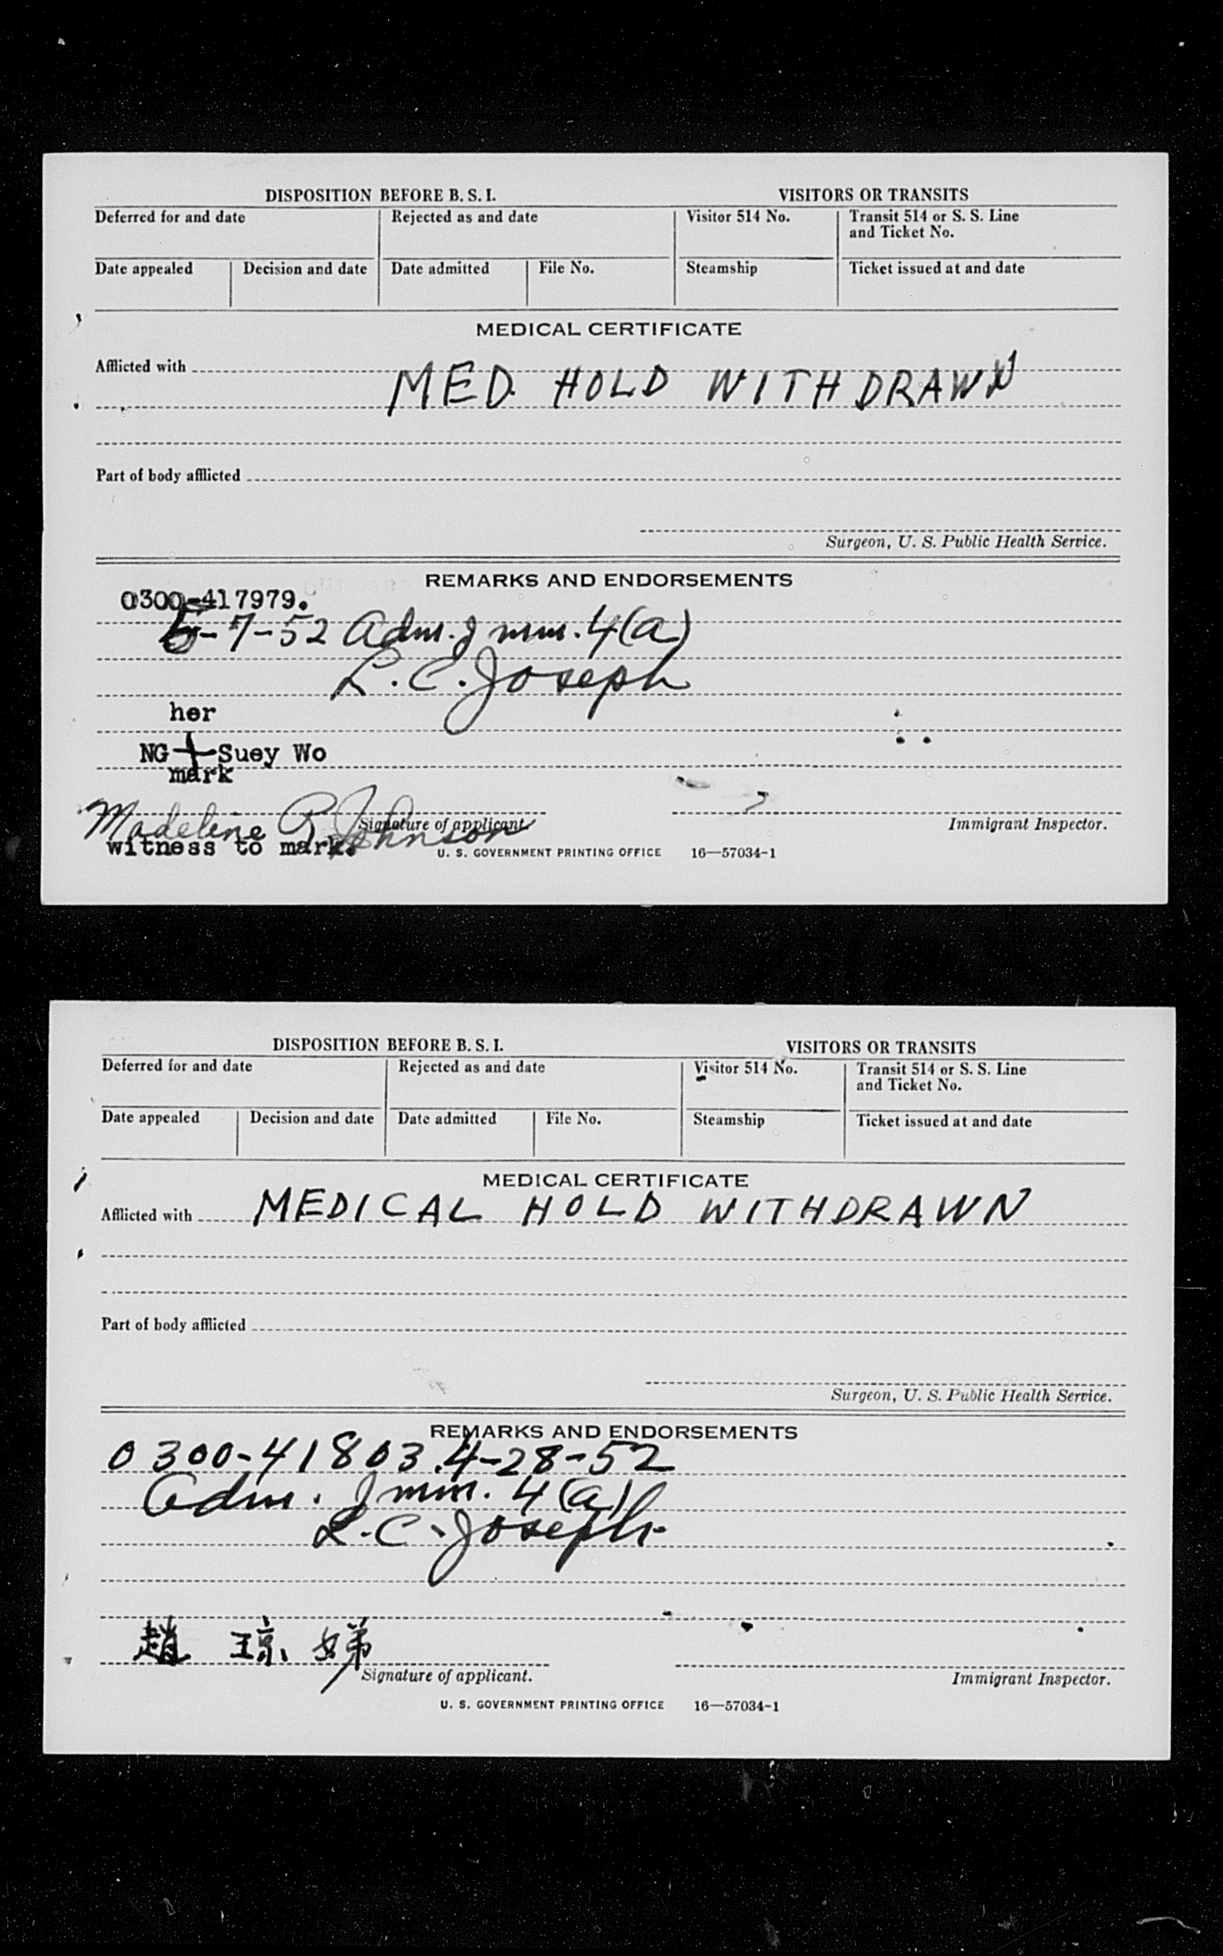 DISPOSITION BEFORE B. S. I. VISITORS OR TRANSITS
Deferred for and date Rejected as and date Visitor 514 No. Transit 514 or S. S. Line
and Ticket No.
Date appealed Decision and date Date admitted File No. Steamship Ticket issued at and date
MEDICAL CERTIFICATE
Afflicted with
MED. HOLD WITHDRAWN
Part of body afflicted
Surgeon, U. S. Public Health Service.
REMARKS AND ENDORSEMENTS
0300-417979.
5-7-52 Adm. Imm. 4(a)
L. C. Joseph
her
NG + Suey Wo
mark
Madeline R. Johnson
Signature of applicant. Immigrant Inspector.
witness to mark.
U. S. GOVERNMENT PRINTING OFFICE 16—57034-1
DISPOSITION BEFORE B. S. I. VISITORS OR TRANSITS
Deferred for and date Rejected as and date Visitor 514 No. Transit 514 or S. S. Line
and Ticket No.
Date appealed Decision and date Date admitted File No. Steamship Ticket issued at and date
MEDICAL CERTIFICATE
Afflicted with MEDICAL HOLD WITHDRAWN
Part of body afflicted
Surgeon, U. S. Public Health Service.
REMARKS AND ENDORSEMENTS
0300-41803. 4-28-52
Adm. Imm. 4(a)
L. C. Joseph
趙 琼 娣
Signature of applicant. Immigrant Inspector.
U. S. GOVERNMENT PRINTING OFFICE 16—57034-1